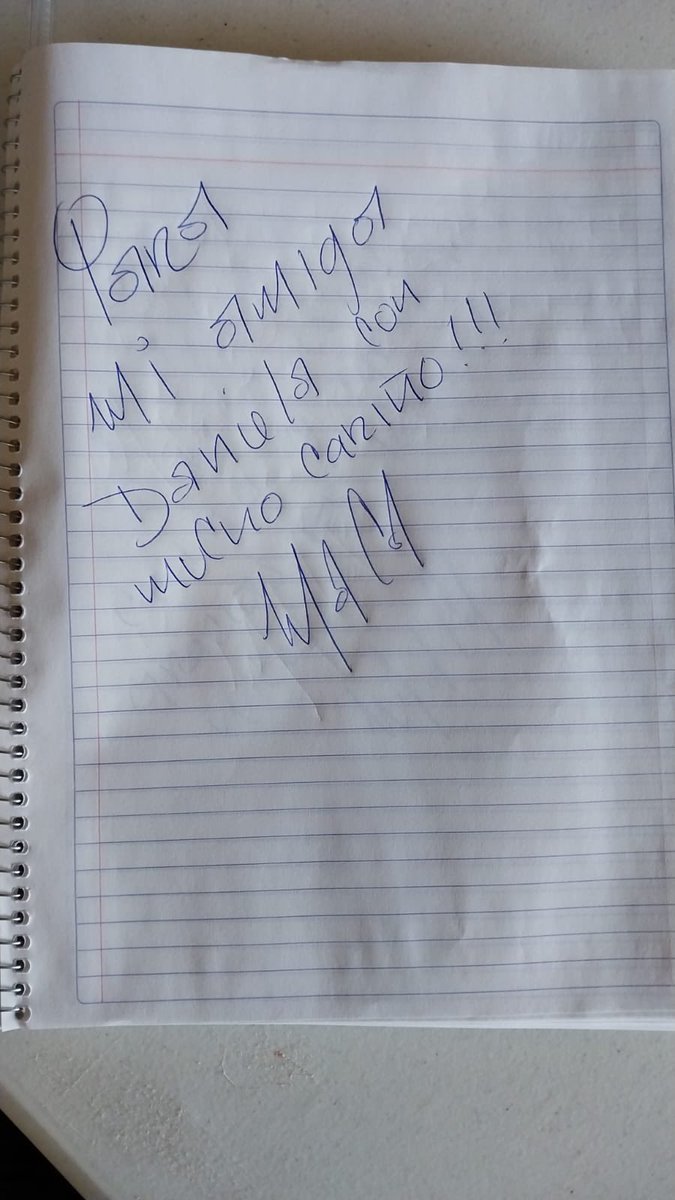 Para
mi amiga
Daniela con
mucho cariño!!!
MACA